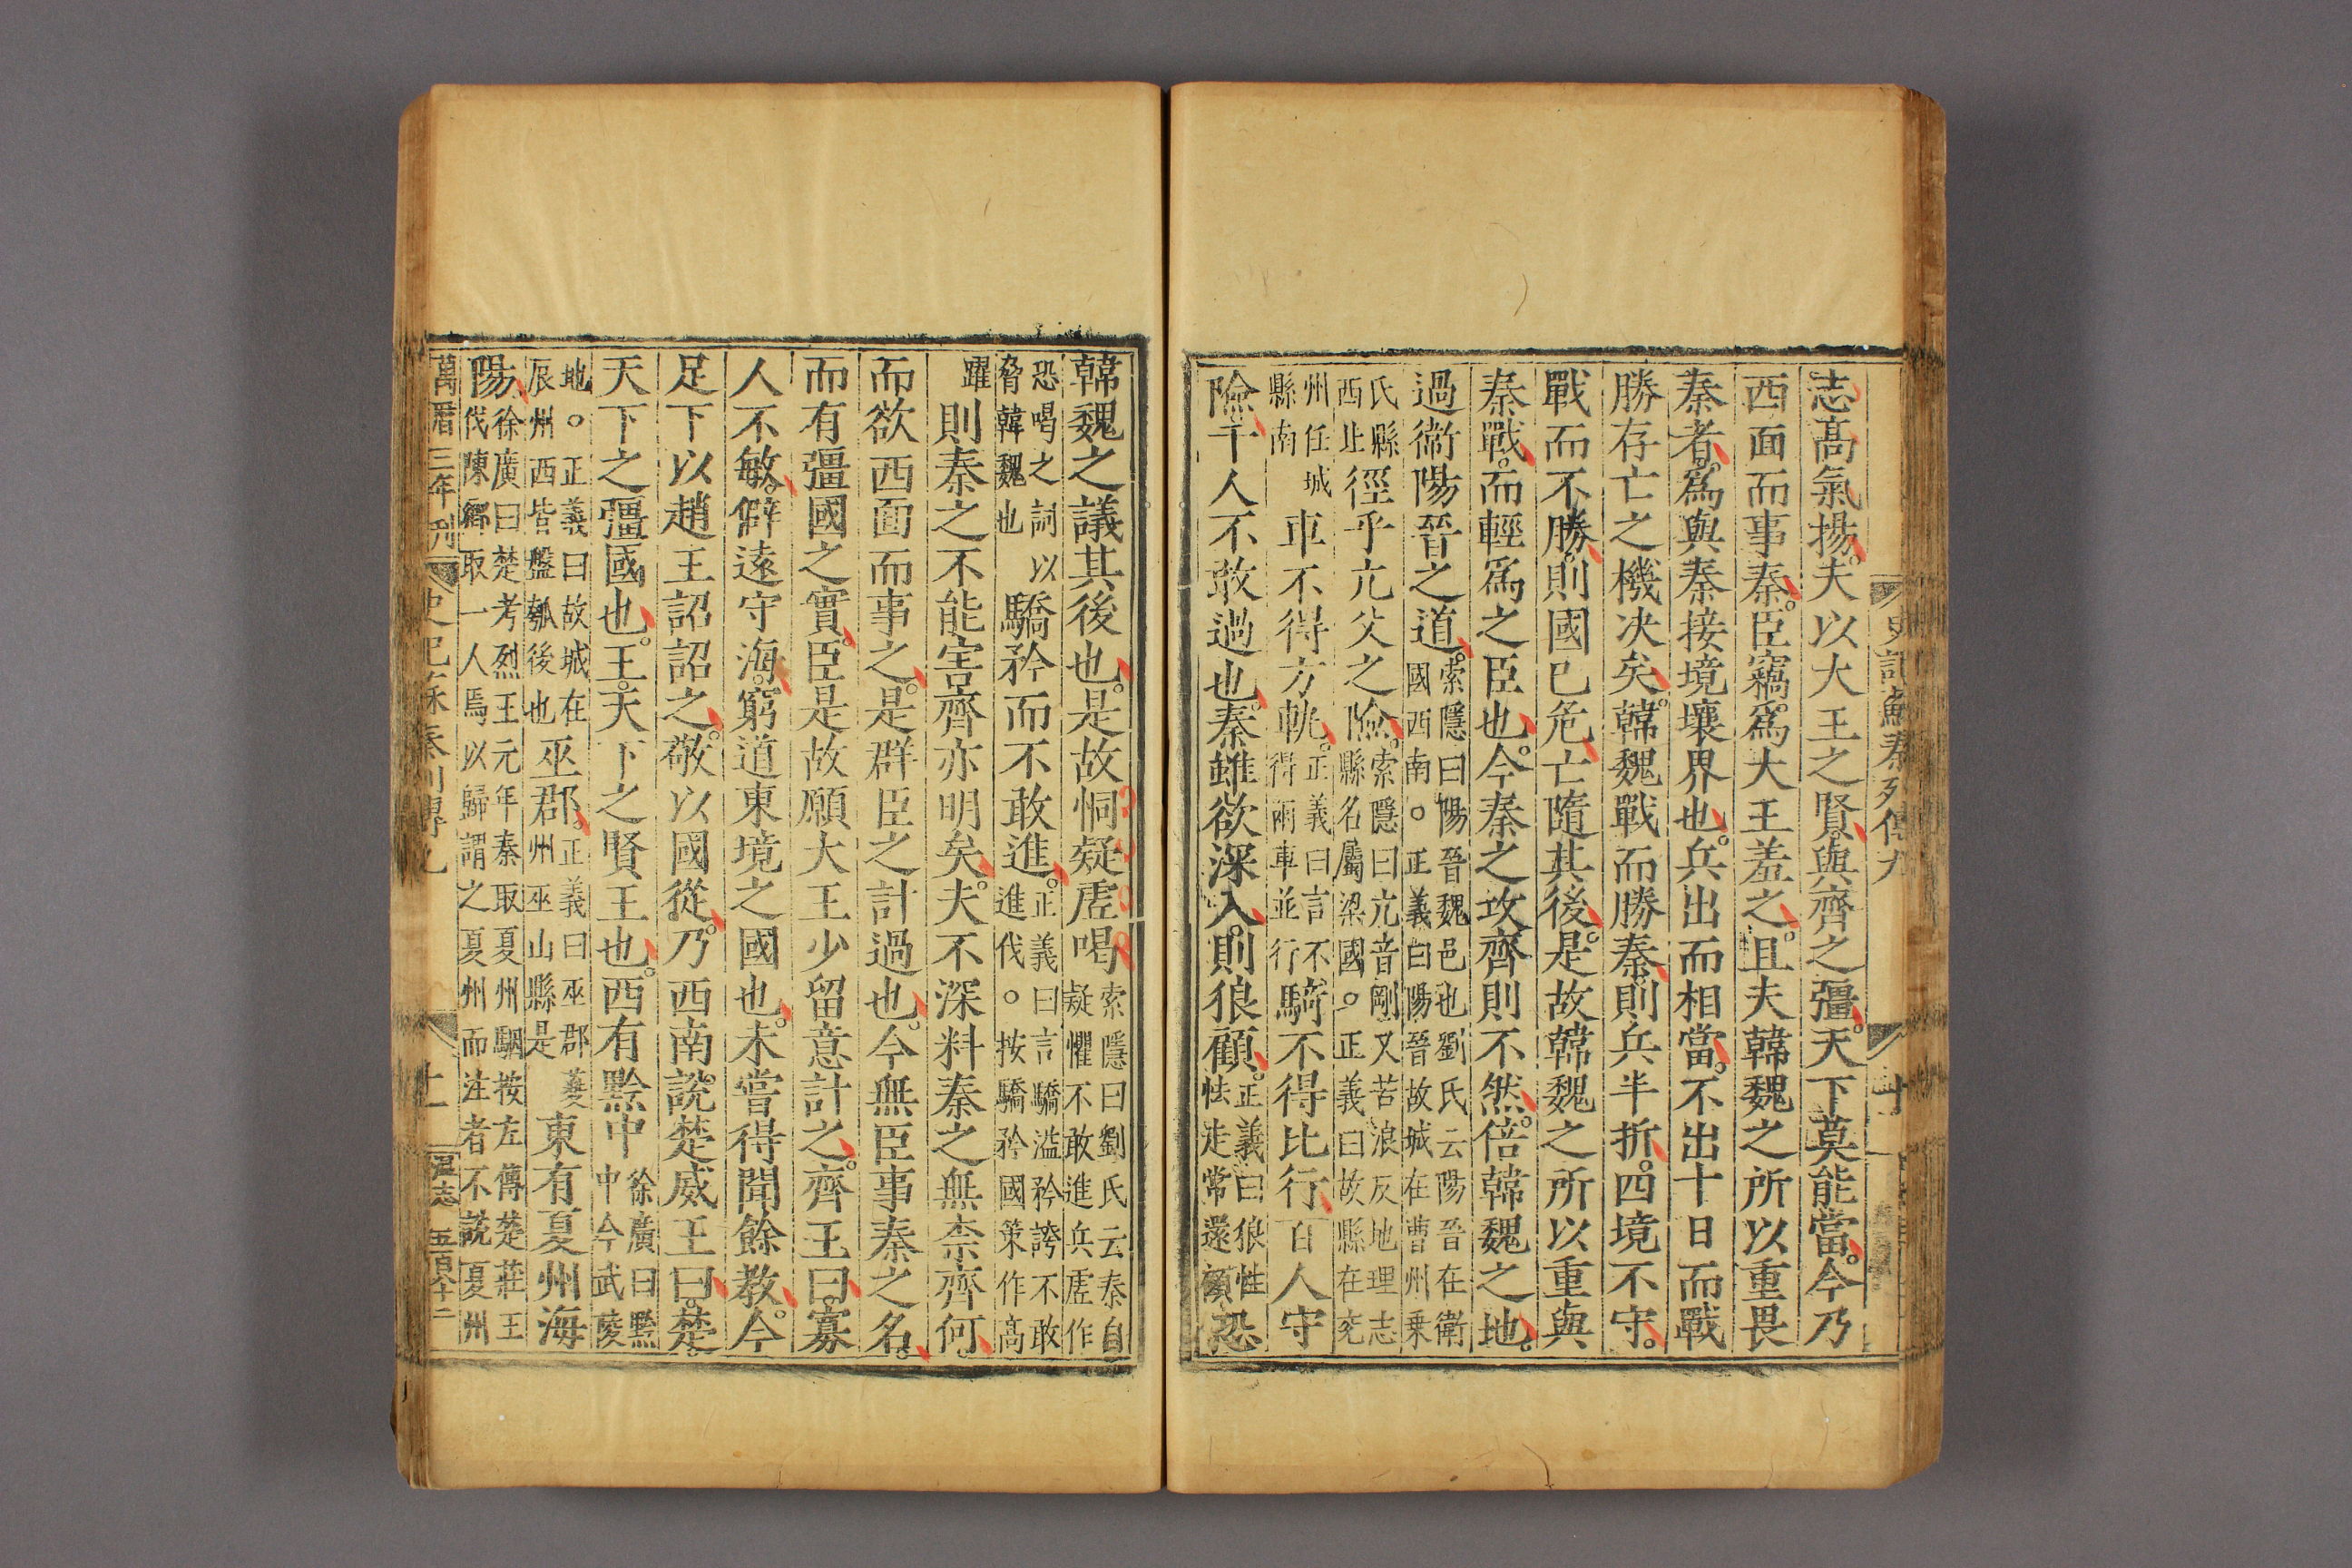 史記蘇秦列傳九 十
志高氣揚夫以大王之賢與齊之彊天下莫能當今乃
西面而事秦臣竊爲大王羞之且夫韓魏之所以重畏
秦者爲與秦接境壤界也兵出而相當不出十日而戰
勝存亡之機决矣韓魏戰而勝秦則兵半折四境不守
戰而不勝則國已危亡隨其後是故韓魏之所以重與
秦戰而輕爲之臣也今秦之攻齊則不然倍韓魏之地
過衞陽晉之道索隱曰陽晉魏邑也劉氏云陽晉在衛國西南。正義曰陽晉故城在曹州乗
氏縣西北徑乎亢父之險索隱曰亢音剛又苦浪反地理志縣名屬梁國。正義曰故縣在兖
州任城縣南車不得方軌正義曰言不得兩車並行騎不得比行百人守
險千人不敢過也秦雖欲深入則狼顧正義曰狼性怯走常還顧恐
韓魏之議其後也是故恫疑虛喝索隱曰劉氏云秦自疑懼不敢進兵虛作
恐喝之詞以脅韓魏也驕矜而不敢進正義曰言驕溢矜誇不敢進伐。按驕矜國策作高
躍則秦之不能害齊亦明矣夫不深料秦之無柰齊何
而欲西面而事之是群臣之計過也今無臣事秦之名
而有彊國之實臣是故願大王少留意計之齊王曰寡
人不敏僻遠守海窮道東境之國也未嘗得聞餘教今
足下以趙王詔詔之敬以國從乃西南說楚威王曰楚
天下之彊國也王天下之賢王也西有黔中徐廣曰黔中今武陵
地。正義曰故城在辰州西皆盤瓠後也巫郡正義曰巫郡夔州巫山縣是東有夏州海
陽徐廣曰楚考烈王元年秦取夏州駰按左傳楚莊王伐陳鄉取一人焉以歸謂之夏州而注者不說夏州
萬曆三年刊 史記蘇秦列傳九 十一 溫志 五百八十二